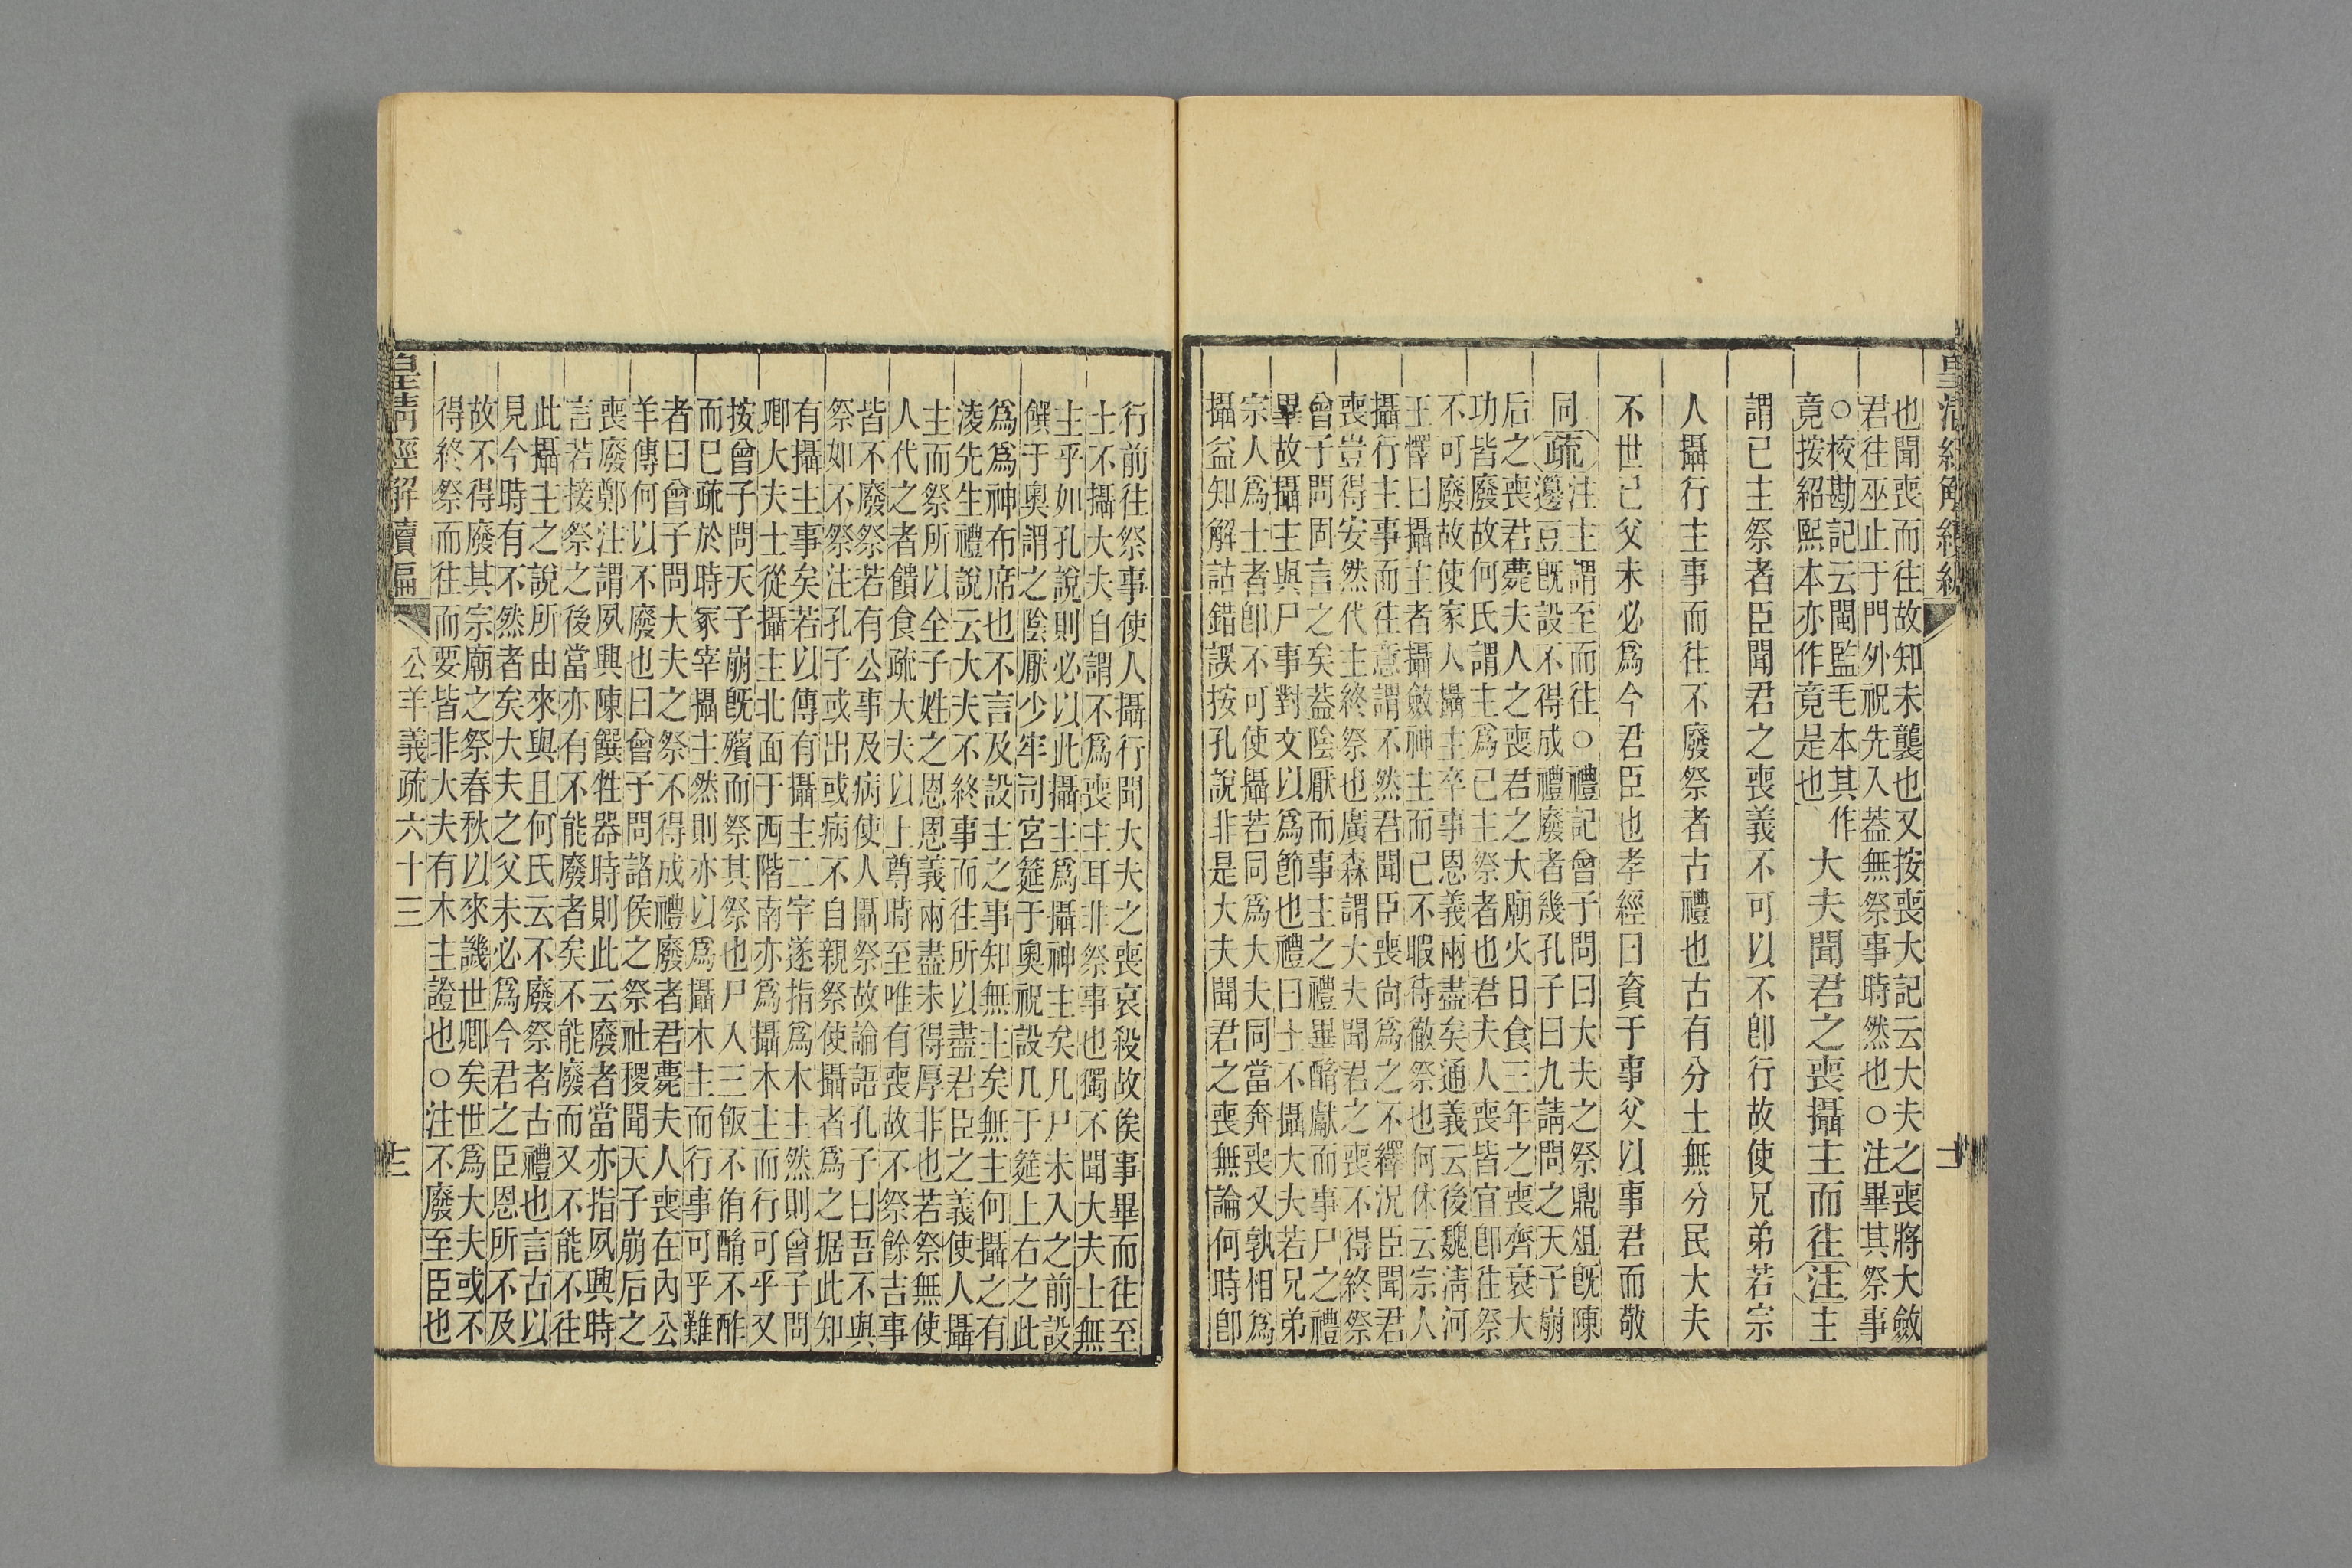 也聞喪而往故知未襲也又按喪大記云大夫之喪將大斂
君往巫止于門外祝先入葢無祭事時然也○注畢其祭事
○校勘記云閩監毛本其作
竟按紹熙本亦作竟是也
大夫聞君之喪攝主而往注主
謂已主祭者臣聞君之喪義不可以不卽行故使兄弟若宗
人攝行主事而往不廢祭者古禮也古有分土無分民大夫
不世已父未必爲今君臣也孝經曰資于事父以事君而敬
同疏
注主謂至而往○禮記曾子問曰大夫之祭鼎俎旣陳
籩豆旣設不得成禮廢者幾孔子曰九請問之天子崩
后之喪君薨夫人之喪君之大廟火日食三年之喪齊衰大
功皆廢故何氏謂主爲已主祭者也君夫人喪皆宜卽往祭
不可廢故使家人攝主卒事恩義兩盡矣通義云後魏淸河
王懌曰攝主者攝斂神主而已不暇待徹祭也何休云宗人
攝行主事而往意謂不然君聞臣喪尙爲之不繹況臣聞君
喪豈得安然代主終祭也廣森謂大夫聞君之喪不得終祭
曾子問固言之矣葢陰厭而事主之禮畢酳獻而事尸之禮
畢故攝主與尸事對文以爲節也禮曰士不攝大夫若兄弟
宗人爲士者卽不可使攝若同爲大夫同當奔喪又孰相爲
攝益知解詁錯誤按孔說非是大夫聞君之喪無論何時卽
行前往祭事使人攝行聞大夫之喪哀殺故俟事畢而往至
士不攝大夫自謂不爲喪主耳非祭事也獨不聞大夫士無
主乎如孔說則必以此攝主爲攝神主矣凡尸未入之前設
饌于奧謂之陰厭少牢司宮筵于奧祝設几于筵上右之此
爲爲神布席也不言及設主之事知無主矣無主何攝之有
淩先生禮說云大夫不終事而往所以盡君臣之義使人攝
主而祭所以全子姓之恩恩義兩盡未得厚非也若祭無使
人代之者饋食疏大夫以上尊時至唯有喪故不祭餘吉事
皆不廢祭若有公事及病使人攝祭故論語孔子曰吾不與
祭如不祭注孔子或出或病不自親祭使攝者爲之据此知
有攝主事矣若以傳有攝主二字遂指爲木主然則曾子問
卿大夫士從攝主北面于西階南亦爲攝木主而行可乎又
按曾子問天子崩旣殯而祭其祭也尸入三飯不侑酳不酢
而已疏於時冢宰攝主然則亦以爲攝木主而行事可乎難
者曰曾子問大夫之祭不得成禮廢者君薨夫人喪在內公
羊傳何以不廢也曰曾子問諸侯之祭社稷聞天子崩后之
喪廢鄭注謂夙興陳饌牲器時則此云廢者當亦指夙興時
言若接祭之後當亦有不能廢者矣不能廢而又不能不往
此攝主之說所由來與且何氏云不廢祭者古禮也言古以
見今時有不然者矣大夫之父未必爲今君之臣恩所不及
故不得廢其宗廟之祭春秋以來譏世卿矣世爲大夫或不
得終祭而往而要皆非大夫有木主證也○注不廢至臣也
皇清經解續編
公羊義疏六十三